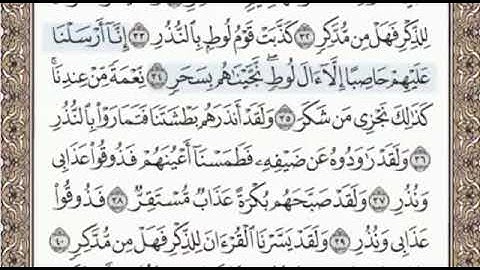 لِلذِّكْرِ فَهَلْ مِن مُّدَّكِرٍ ٣٢ كَذَّبَتْ قَوْمُ لُوطٍۭ بِٱلنُّذُرِ ٣٣ إِنَّآ أَرْسَلْنَا
عَلَيْهِمْ حَاصِبًا إِلَّآ ءَالَ لُوطٍۖ نَّجَّيْنَٰهُم بِسَحَرٍ ٣٤ نِّعْمَةً مِّنْ عِندِنَاۚ
كَذَٰلِكَ نَجْزِى مَن شَكَرَ ٣٥ وَلَقَدْ أَنذَرَهُم بَطْشَتَنَا فَتَمَارَوْا۟ بِٱلنُّذُرِ
٣٦ وَلَقَدْ رَٰوَدُوهُ عَن ضَيْفِهِۦ فَطَمَسْنَآ أَعْيُنَهُمْ فَذُوقُوا۟ عَذَابِى
وَنُذُرِ ٣٧ وَلَقَدْ صَبَّحَهُم بُكْرَةً عَذَابٌ مُّسْتَقِرٌّ ٣٨ فَذُوقُوا۟
عَذَابِى وَنُذُرِ ٣٩ وَلَقَدْ يَسَّرْنَا ٱلْقُرْءَانَ لِلذِّكْرِ فَهَلْ مِن مُّدَّكِرٍ ٤٠